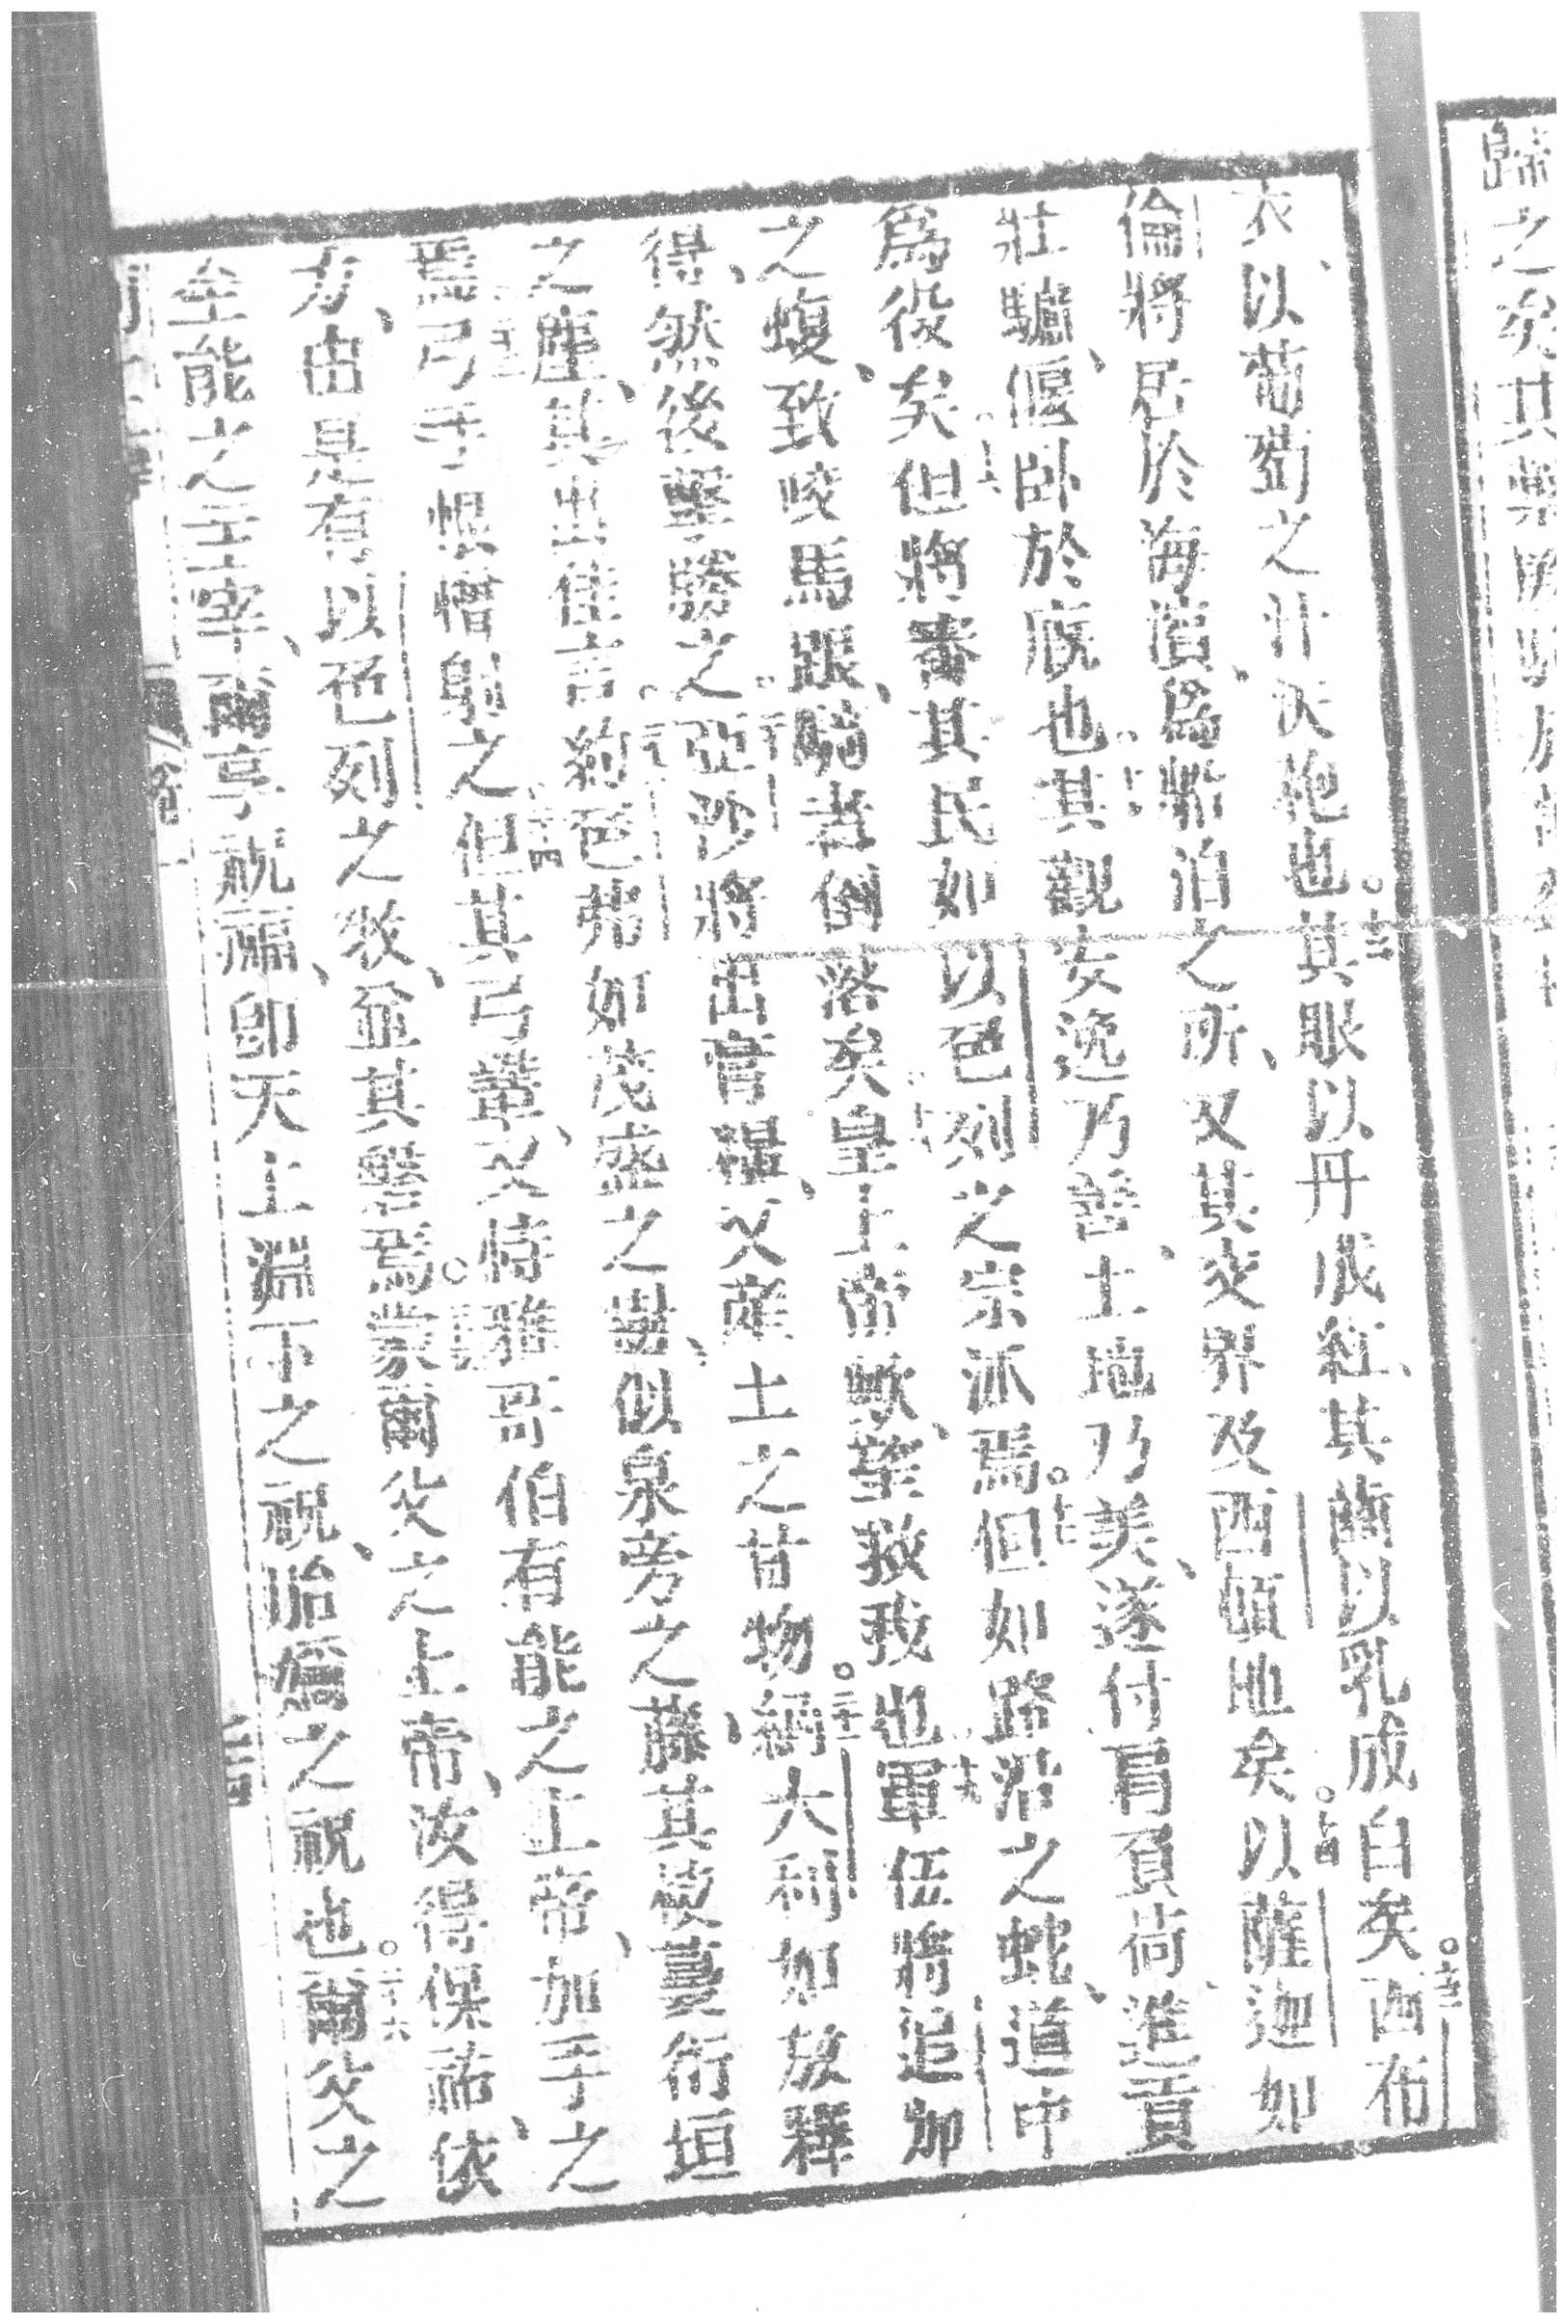 歸之矣其
衣、以葡萄之汁洗袍也○十二其眼以丹成紅、其齒以乳成白矣○十三西布
倫將居於海濱、為船泊之所、又其交界及西頓地矣○十四以薩迦如
壯驢、偃臥於廐也○十五其觀安逸乃善、土地乃美、遂付肩負荷、進貢
為役矣○十六但將審其民如以色列之宗派焉○十七但如路沿之蛇、道中
之蝮、致咬馬跟、騎者倒落矣○十八皇上帝歟、望救我也○十九軍伍將追迦
得、然後擊勝之○二十亞沙將出膏糧、又產土之甘物○二十一納大利如放釋
之塵、其出佳言○二十二約色弗如茂盛之樹、似泉旁之藤、其枝蔓衍垣
焉○二十三弓手恨憎射之○二十四但其弓鞏、又侍雅哥伯有能之上帝、加手之
力、由是有以色列之牧、並其磐焉○二十五蒙爾父之上帝、汝得保祐、依
全能之主宰、爾享祝福、即天上淵下之祝、胎懷之祝也○二十六爾父之